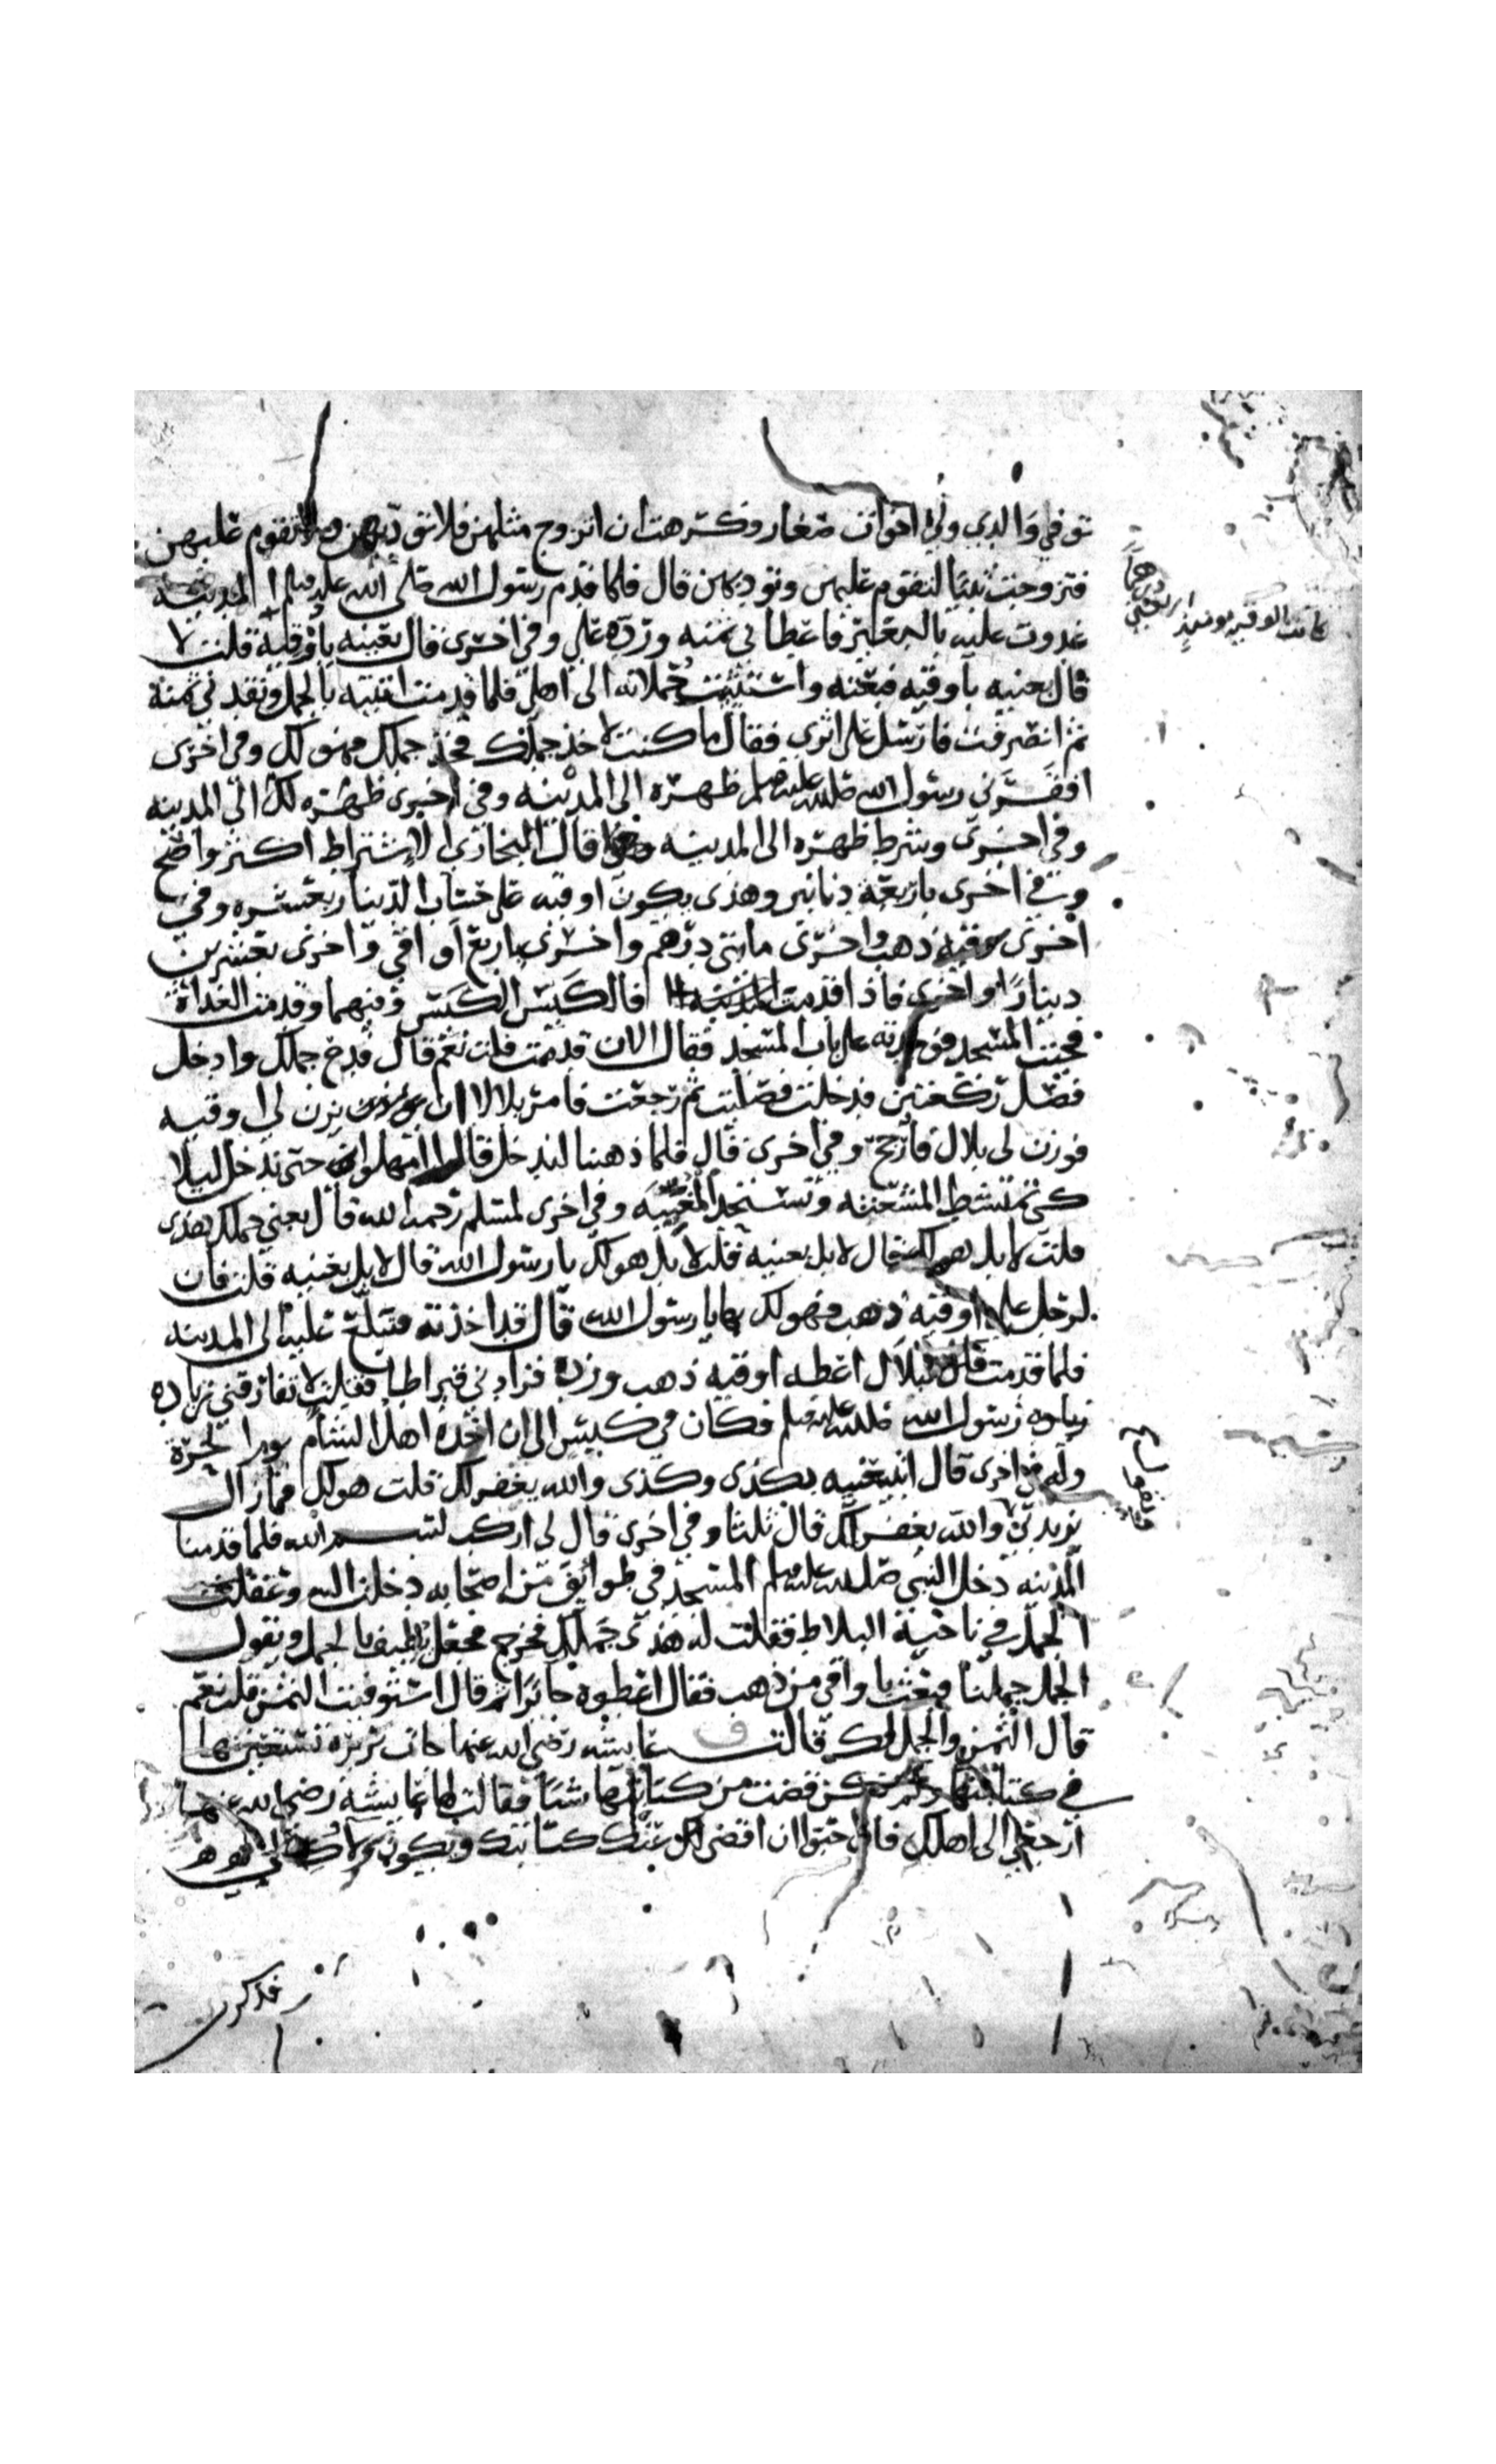 توفي والدي ولي اخوات صغار وكرهت ان اتزوج مثلهن فلا تؤدبهن ولا تقوم عليهن
فتزوجت ثيبا لتقوم عليهن وتؤدبهن قال فلما قدم رسول الله صلى الله عليه وسلم المدينه
غدوت عليه بالبعير فاعطاني ثمنه ورده علي وفي اخرى قال بعينه باوقية قلت لا
قال بعنيه باوقيه فبعته واستثنيت حملانه الى اهلي فلما قدمت اتيته بالجمل ونقدني ثمنه
ثم انصرفت فارسل على اثري فقال ما كنت لاخذ جملك فخذ جملك فهو لك وفي اخرى
افقرني رسول الله صلى الله عليه وسلم ظهره الى المدينه وفي اخرى ظهره لك الى المدينه
وفي اخرى وشرط ظهره الى المدينه قال البخاري الاشتراط اكثر واصح
وفي اخرى باربعة دنانير وهذى يكون اوقيه على حساب الدينار بعشره وفي
اخرى اوقيه ذهب واخرى مائتي درهم واخرى باربع اواقي واخرى بعشرين
دينارا واخرى فاذا قدمت المدينه قال الكيس الكيس وفيها وقدمت الغداة
فجئت المسجد فوجدته على باب المسجد فقال الان قدمت قلت نعم قال فدع جملك وادخل
فصل ركعتين فدخلت فصليت ثم رجعت فامر بلالا ان يزن لي اوقيه
فوزن لي بلال فارجح وفي اخرى قال فلما ذهبنا لندخل قال امهلوا حتى ندخل ليلا
كي تمتشط الشعثه وتستحد المغيبه وفي اخرى لمسلم رحمه الله قال بعني جملك هذى
قلت لا بل هو لك قال لا بل بعنيه قلت لا بل هو لك يا رسول الله قال لا بل بعنيه قلت فان
لرجل علي اوقيه ذهب فهو لك بها يا رسول الله قال قد اخذته فتبلغ عليه الى المدينه
فلما قدمت قال لبلال اعطه اوقيه ذهب وزده فزادني قيراطا فقلت لا تفارقني زياده
زياده رسول الله صلى الله عليه وسلم فكان في كيس الى ان اخذه اهل الشام يوم الحرة
وله في اخرى قال اتبيعنيه بكذى وكذى والله يغفر لك قلت هو لك فما زال
يزيدني والله يغفر لك قال ثلثا وفي اخرى قال لي اركب بسم الله فلما قدمنا
المدينه دخل النبي صلى الله عليه وسلم المسجد في طوايف من اصحابه دخلت اليه وعقلت
الجمل في ناحية البلاط فقلت له هذى جملك فخرج فجعل يطيف بالجمل ويقول
الجمل جملنا فبعث باواقي من ذهب فقال اعطوه جابرا ثم قال استوفيت الثمن قلت نعم
قال الثمن والجمل لك قالت عايشه رضي الله عنها جات بريره تستعينها
في كتابتها ولم تكن قضت من كتابتها شيا فقالت لها عايشه رضي الله عنها
ارجعي الى اهلك فان احبوا ان اقضي لك عنك كتابتك ويكون ولاك لي
كانت الاوقيه يومئذ اربعين درهما
فذكر